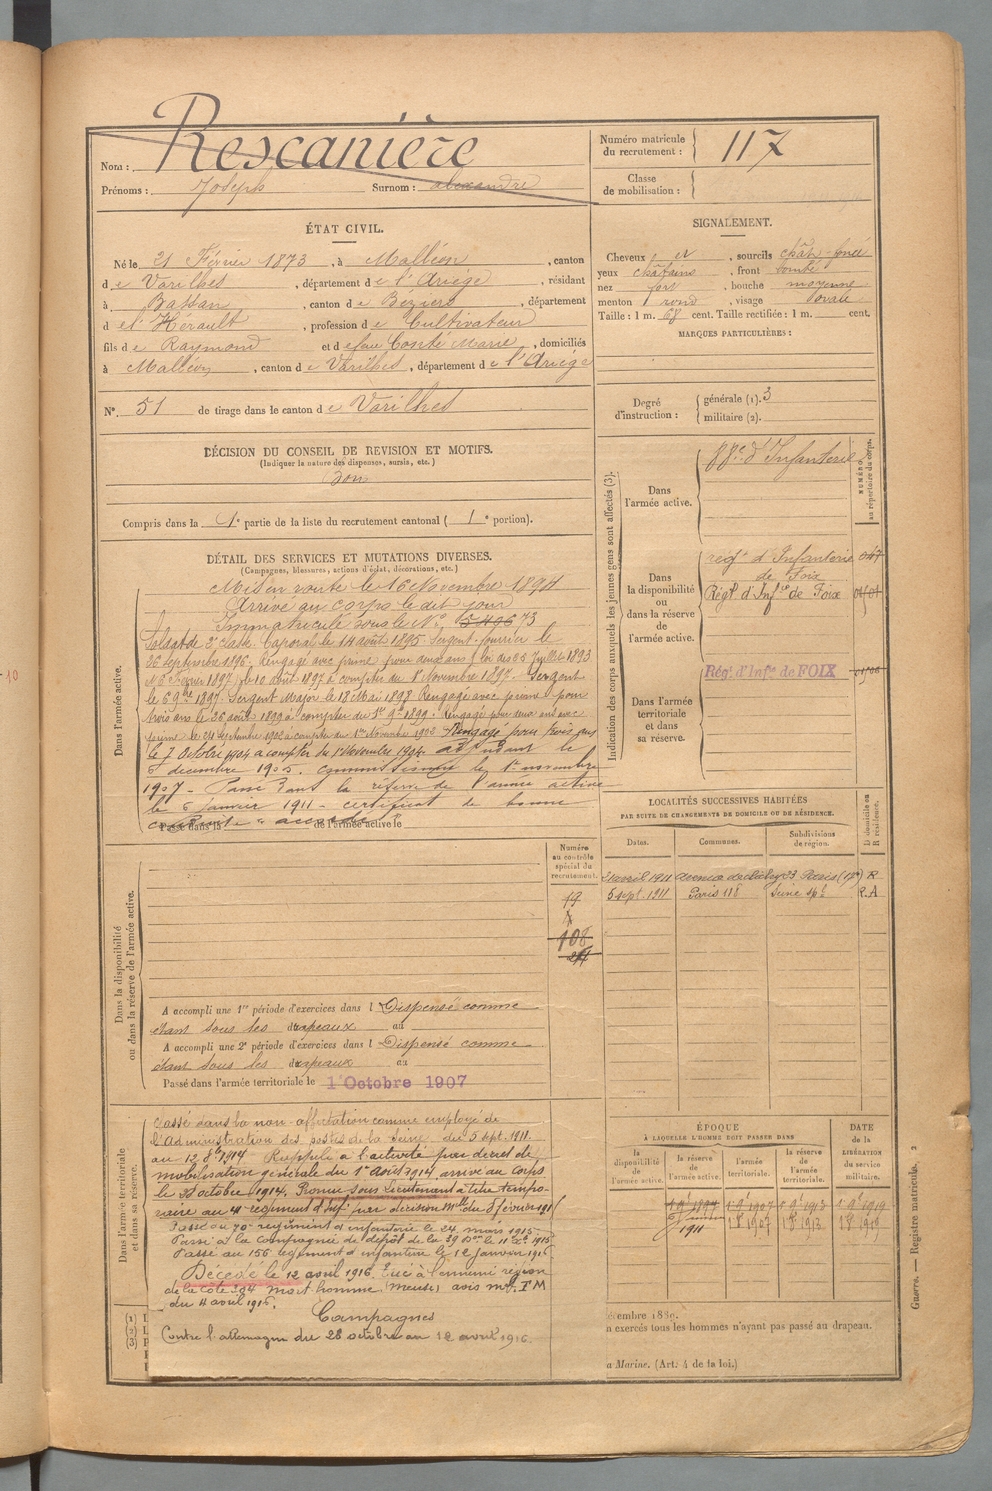 Nom : Rescanière
Prénoms : Joseph Surnom : alexandre
Numéro matricule du recrutement : 117
Classe de mobilisation :
ÉTAT CIVIL.
Né le 21 Février 1873, à Malléon, canton
de Varilhes, département de l'Ariège, résidant
à Bassan, canton de Béziers, département
d et l'Hérault, profession de Cultivateur
fils de Raymond et de feue Conté Marie, domiciliés
à Malléon, canton de Varilhes, département de l'Ariège
N° 51 de tirage dans le canton de Varilhes
SIGNALEMENT.
Cheveux et, sourcils chât. foncé
yeux châtains, front bombé
nez fort, bouche moyenne
menton rond, visage ovale
Taille : 1 m. 68 cent. Taille rectifiée : 1 m. cent.
MARQUES PARTICULIÈRES :
Degré d'instruction : générale (1). 3
militaire (2).
DÉCISION DU CONSEIL DE REVISION ET MOTIFS.
(Indiquer la nature des dispenses, sursis, etc.)
Bon
Compris dans la 1e partie de la liste du recrutement cantonal ( 1e portion).
DÉTAIL DES SERVICES ET MUTATIONS DIVERSES.
(Campagnes, blessures, actions d'éclat, décorations, etc.)
Dans l'armée active.
Mis en route le 16 Novembre 1894
Arrivé au corps le dit jour
Immatriculé sous le N° 73
Soldat de 2e classe Caporal le 14 août 1895 Sergent fourrier le
26 septembre 1896. Rengagé avec prime pour deux ans
le 10 août 1897 à compter du 1er Novembre 1897. Sergent
le 6 9bre 1897. Sergent Major le 18 Mai 1898 Rengagé avec prime pour
trois ans le 26 août 1899 à compter du 1er 9bre 1899. Rengagé pour deux ans avec
prime le 21 septembre 1902 à compter du 1er Novembre 1902 Rengagé pour trois ans
le 7 Octobre 1904 à compter du 1er Novembre 1904. adjudant le
5 décembre 1905. commissionné le 1er novembre
1907 - Passé dans la réserve de l'armée active
le 6 janvier 1911 - certificat de bonne
conduite "accordé"
Passé dans la de l'armée active le
Indication des corps auxquels les jeunes gens sont affectés (3).
NUMÉRO au répertoire du corps.
Dans l'armée active.
88e d'Infanterie
Dans la disponibilité ou dans la réserve de l'armée active.
régt d'Infanterie 047
de Foix
Régt d'Infie de Foix
Dans l'armée territoriale et dans sa réserve.
Régt d'Infie de FOIX
LOCALITÉS SUCCESSIVES HABITÉES
PAR SUITE DE CHANGEMENTS DE DOMICILE OU DE RÉSIDENCE.
Dates. Communes. Subdivisions de région. D domicile ou R résidence.
21 avril 1911 avenue de Clichy 33 Paris (17e) R
5 sept. 1911 Paris 118 Seine R.A
Dans la disponibilité ou dans la réserve de l'armée active.
Numéro au contrôle spécial du recrutement.
19
108
A accompli une 1re période d'exercices dans l Dispensé comme
étant sous les drapeaux au
A accompli une 2e période d'exercices dans l Dispensé comme
étant sous les drapeaux au
Passé dans l'armée territoriale le 1 Octobre 1907
Dans l'armée territoriale et dans sa réserve.
Classé dans la non-affectation comme employé de
l'administration des postes de la Seine, du 5 sept. 1911.
au 12 8bre 1914 Rappelé à l'activité par décret de
mobilisation générale du 1er Août 1914 arrivé au corps
le 28 octobre 1914. Promu sous Lieutenant à titre tempo-
raire au 4e régiment d'Inf. par décision Mlle du 5 février 191
Passé au 70e régiment d'infanterie le 24 mars 1915.
Passé à la compagnie de dépôt de la 39 Don le 11 1915
Passé au 156 régiment d'infanterie le 12 janvier 1916
Décédé le 12 avril 1916. Tué à l'ennemi région
de la côte 304 mort homme (Meuse) avis
du 4 avril 1916.
Campagnes
Contre l'allemagne du 28 octobre au 12 avril 1916.
ÉPOQUE
À LAQUELLE L'HOMME DOIT PASSER DANS
la disponibilité de l'armée active. la réserve de l'armée active. l'armée territoriale. la réserve de l'armée territoriale.
DATE de la LIBÉRATION du service militaire.
1 9bre 1897 1 9bre 1907 1 9bre 1913 1 9bre 1919
6 janvier 1911 1 8bre 1907 1 8bre 1913 1 8bre 1919
(1)
(2)
(3)
écembre 1889.
n exercés tous les hommes n'ayant pas passé au drapeau.
a Marine. (Art. 4 de la loi.)
Guerre. — Registre matricule. 2